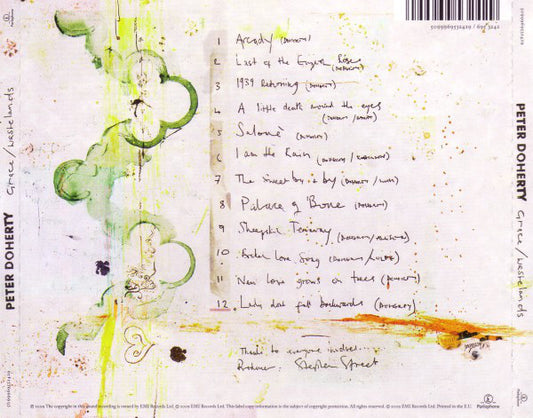 5099969532429 / 695 3242
1 Arcady (DOHERTY)
2 Last of the English Roses
(DOHERTY)
3 1939 Returning (DOHERTY)
4 A little death around the eyes
(DOHERTY /
5 Salomé (DOHERTY)
6 I am the Rain (DOHERTY /
7 The Sweet by & by (DOHERTY /
8 Palace of Bone (DOHERTY)
9 Sheepskin Tearaway
(DOHERTY /
10 Broken Love Song (DOHERTY /
11 New love grows on trees (DOHERTY)
12. Lady don't fall backwards (DOHERTY)
Thanks to everyone involved....
Producer: Stephen Street
PETER DOHERTY Grace/Wastelands
PETER DOHERTY Grace/Wastelands
5099969532429
Parlophone
℗ 2009 The copyright in this sound recording is owned by EMI Records Ltd. © 2009 EMI Records Ltd. This label copy information is the subject of copyright protection. All rights reserved. © 2009 EMI Records Ltd. Printed in the E.U.